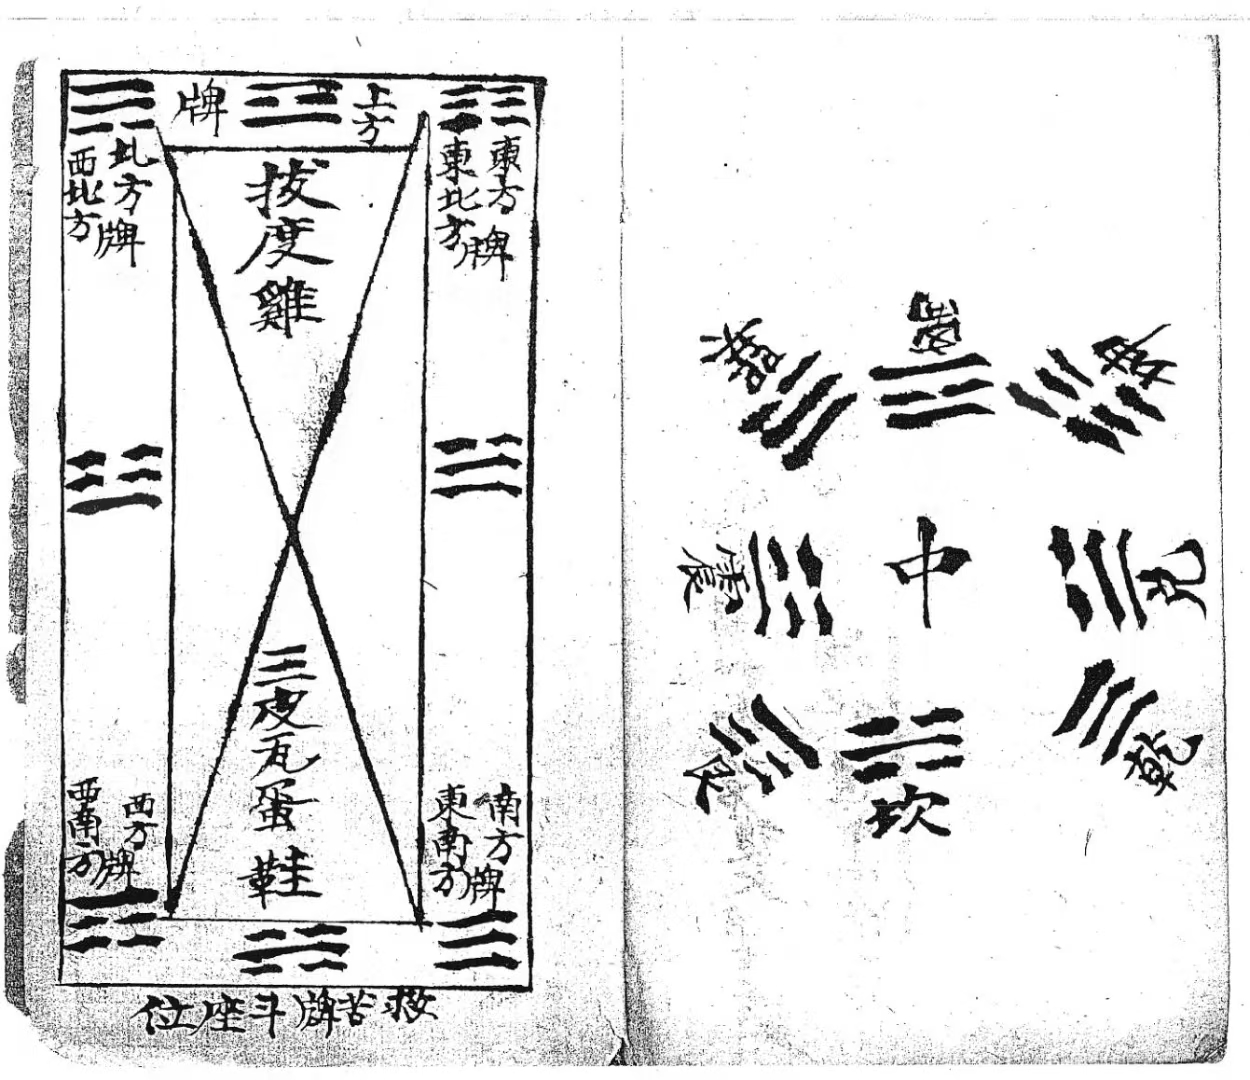 中
震
兌
艮
坎
乾
上方
牌
東方牌
東北方
北方牌
西北方
拔度雞
三皮瓦蛋鞋
南方牌
東南方
西方牌
西南方
救苦牌斗座位